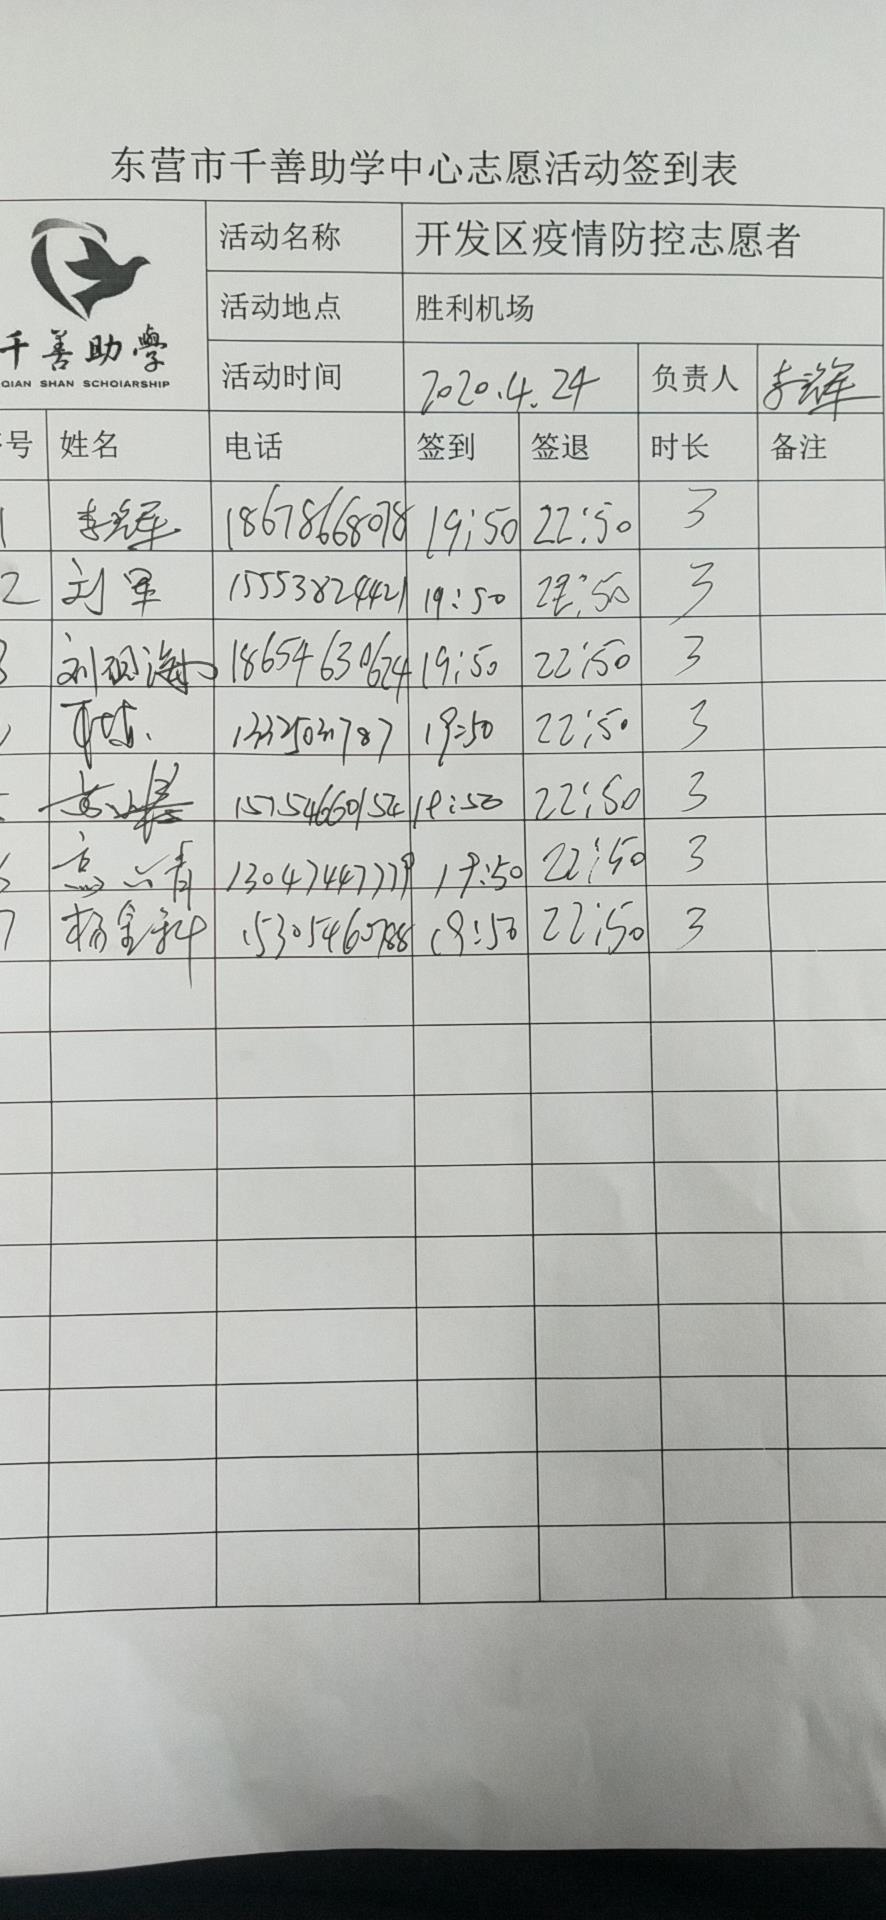 东营市千善助学中心志愿活动签到表
千善助學
QIAN SHAN SCHOIARSHIP
活动名称 开发区疫情防控志愿者
活动地点 胜利机场
活动时间 2020.4.24 负责人
号 姓名 电话 签到 签退 时长 备注
1 18678668078 19:50 22:50 3
2 刘军 15553824421 19:50 22:50 3
3 18654630624 19:50 22:50 3
19:50 22:50 3
15754660154 19:50 22:50 3
13047447779 19:50 22:50 3
7 杨金科 15305460788 19:50 22:50 3